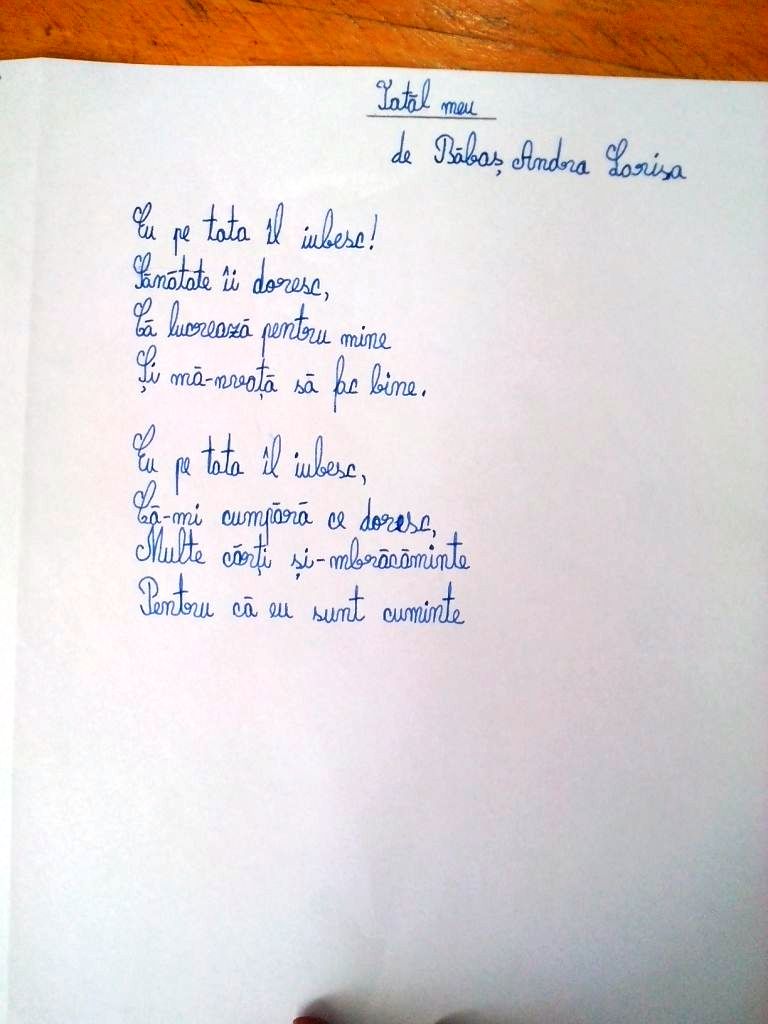 Tatăl meu
de Băbaș Andra Larisa
Eu pe tata îl iubesc!
Sănătate îi doresc,
Că lucrează pentru mine
Și mă-nvață să fac bine.
Eu pe tata îl iubesc,
Că-mi cumpără ce doresc,
Multe cărți și-mbrăcăminte
Pentru că eu sunt cuminte